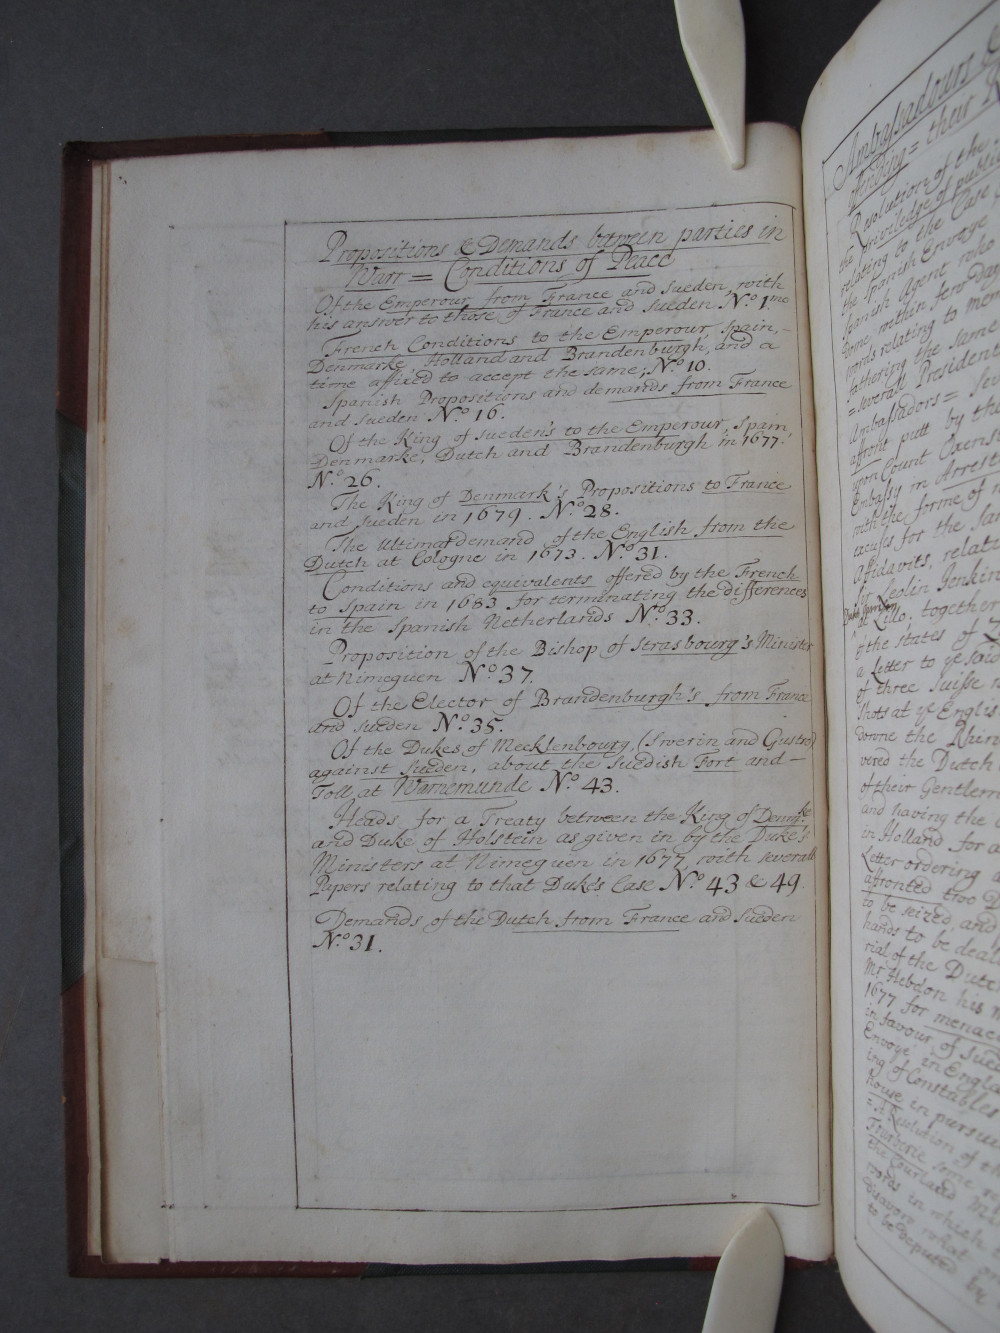 Propositions & Demands between parties in
Warr = Conditions of Peace
Of the Emperour from France and Sueden, with
his answer to those of France and Sueden N.o 1.mo
French Conditions to the Emperour, Spain,
Denmarke, Holland and Brandenburgh, and a
time affixed to accept the same; N.o 10.
Spanish Propositions and demands from France
and Sueden N.o 16.
Of the King of Sueden's to the Emperour, Spain
Denmarke, Dutch and Brandenburgh in 1677.
N.o 26.
The King of Denmark's Propositions to France
and Sueden in 1679. N.o 28.
The Ultima demand of the English from the
Dutch at Cologne in 1673. N.o 31.
Conditions and equivalents offered by the French
to Spain in 1683 for terminating the differences
in the Spanish Netherlands N.o 33.
Proposition of the Bishop of Strasbourg's Minister
at Nimeguen N.o 37.
Of the Elector of Brandenburgh's from France
and Sueden N.o 35.
Of the Dukes of Mecklenbourg, (Swerin and Gustro)
against Sueden, about the Suedish Fort and –
Toll at Warnemunde N.o 43.
Heads for a Treaty between the King of Denm.ke
and Duke of Holstein as given in by the Duke's
Ministers at Nimeguen in 1677 with severall
Papers relating to that Duke's Case N.o 43 & 49.
Demands of the Dutch from France and Sueden
N.o 31.
Ambassadours
their
Resolution of the
the Priviledge of public
relating to the Case
the Spanish Envoye
Spanish Agent who
some within few days
words relating to
fathering the same
= severall President
Ambassadors =
affront putt by the
upon Count Oxens
Embassy in Arrest
with the forme of
excuses for the sa
Affidavits, relati
Sr Leolin Jenkin
at Lillo; together
the states of
a Letter to ye said
of three Suisse
shots at ye Englis
downe the Rhin
vered the Dutch
of their Gentlem
and having the
in Holland for a
Letter ordering
affronted two
to be seized and
hands to be deal
rial of the Dutch
Mr Hebdon his
1677 for menac
in favour of Sued
Envoyé in Engla
ing of Constables
house in pursu
= A Resolution of th
the Courland
words in which
disavow what
to be Deputed by